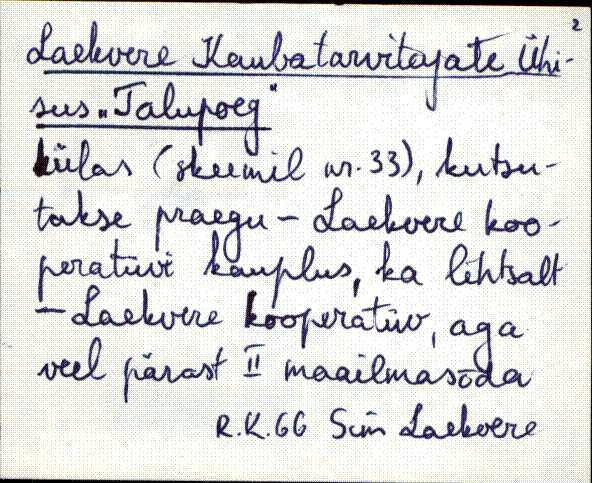 2
Laekvere Kaubatarvitajate Ühi-
sus „Talupoeg"
külas (skeemil nr. 33), kutsu-
takse praegu - Laekvere koo-
peratiivi kauplus, ka lihtsalt
- Laekvere kooperatiiv, aga
veel pärast II maailmasõda
R.K.66 Sim Laekvere